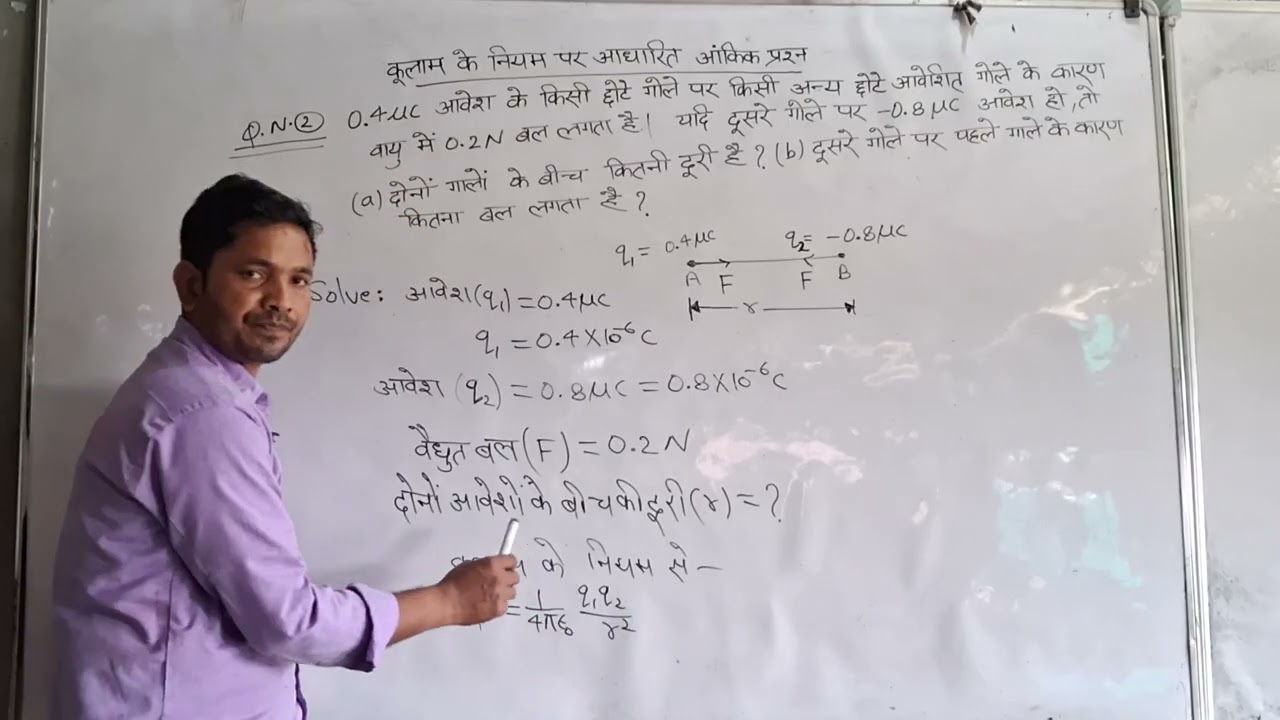 कूलाम के नियम पर आधारित आंकिक प्रश्न
Q.N.② 0.4μC आवेश के किसी छोटे गोले पर किसी अन्य छोटे आवेशित गोले के कारण
वायु में 0.2N बल लगता है। यदि दूसरे गोले पर -0.8μC आवेश हो, तो
(a) दोनों गोलों के बीच कितनी दूरी है? (b) दूसरे गोले पर पहले गोले के कारण
कितना बल लगता है?
q₁= 0.4μC q₂= -0.8μC
A F F B
r
Solve: आवेश(q₁)=0.4μC
q₁=0.4×10⁻⁶C
आवेश (q₂)=0.8μC=0.8×10⁻⁶C
वैद्युत बल(F)=0.2N
दोनों आवेशों के बीच की दूरी(r)=?
के नियम से -
=1/4πε₀ q₁q₂/r²